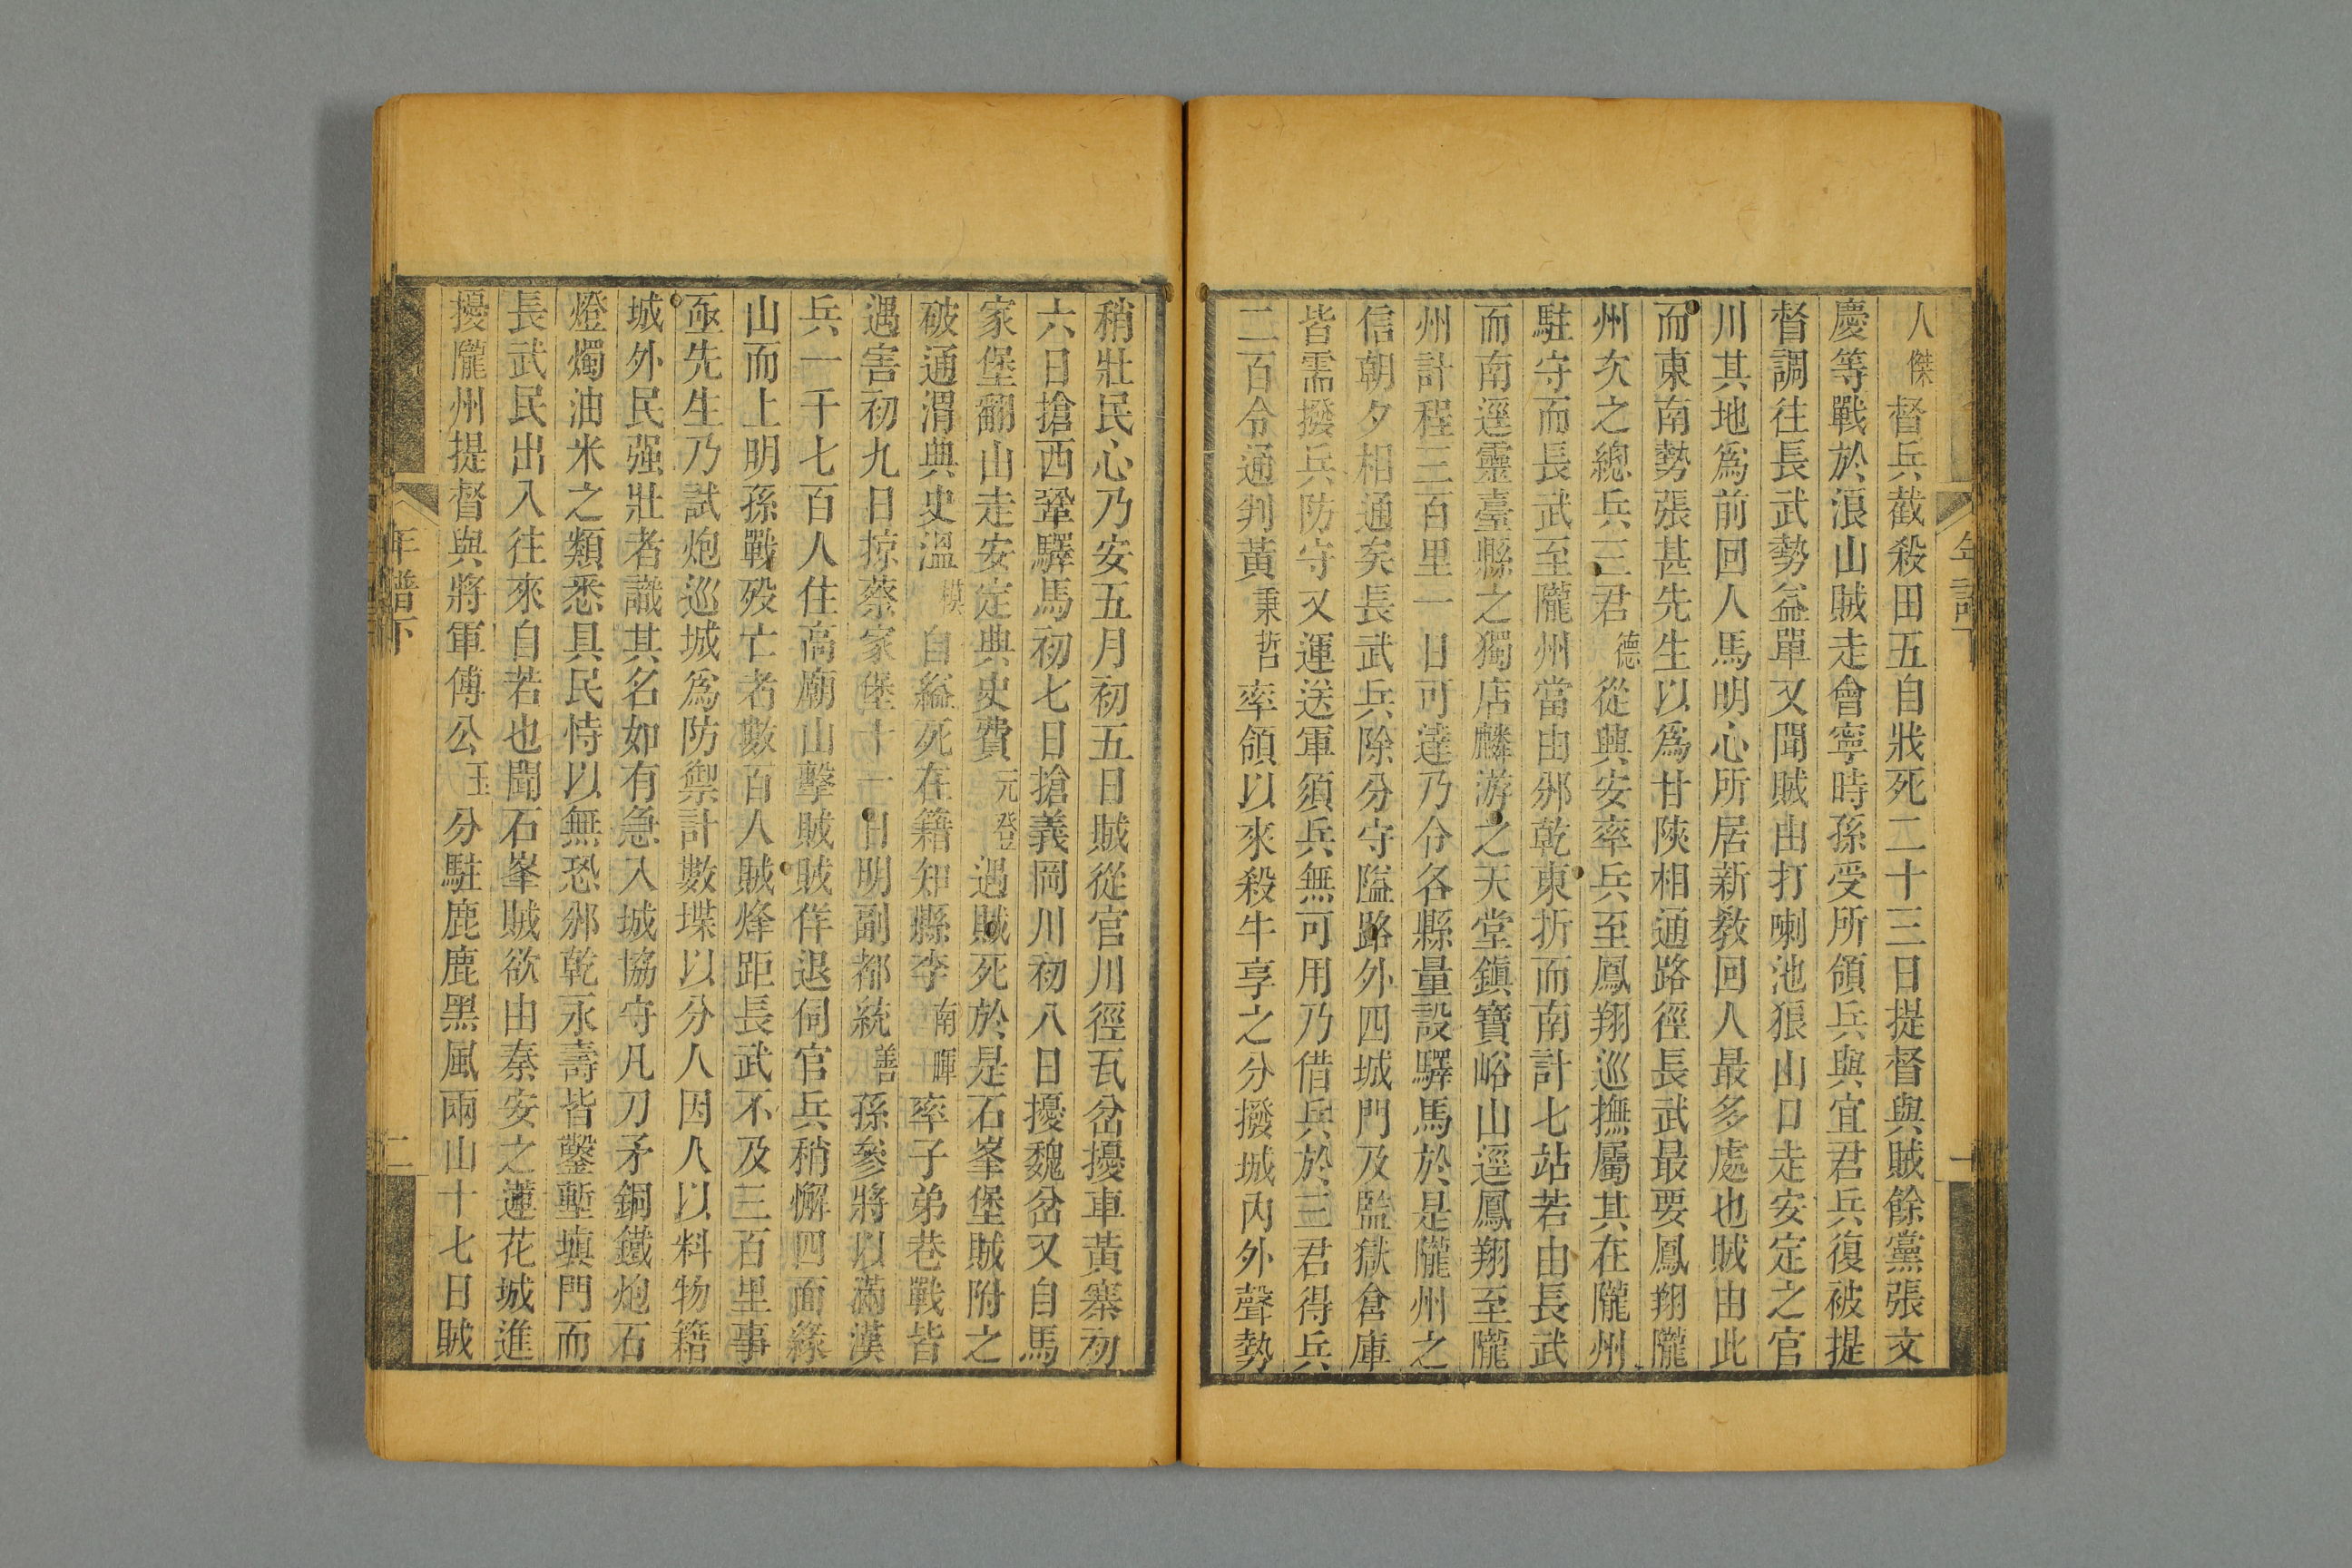 人傑督兵截殺田五自戕死二十三日提督與賊餘黨張文
慶等戰於浪山賊走會寧時孫受所領兵與宜君兵復被提
督調往長武勢益單又聞賊由打喇池狼山口走安定之官
川其地爲前回人馬明心所居新教回人最多處也賊由此
而東南勢張甚先生以爲甘陝相通路徑長武最要鳳翔隴
州次之總兵三君德從興安率兵至鳳翔巡撫屬其在隴州
駐守而長武至隴州當由邠乾東折而南計七站若由長武
而南逕靈臺縣之獨店麟游之天堂鎮寶峪山逕鳳翔至隴
州計程三百里一日可達乃令各縣量設驛馬於是隴州之
信朝夕相通矣長武兵除分守隘路外四城門及監獄倉庫
皆需撥兵防守又運送軍須兵無可用乃借兵於三君得兵
二百令通判黃秉哲率領以來殺牛享之分撥城內外聲勢
年譜下
一
稍壯民心乃安五月初五日賊從官川徑瓦岔擾車黃寨初
六日搶西鞏驛馬初七日搶義岡川初八日擾魏岔又自馬
家堡翻山走安定典史費元登遇賊死於是石峯堡賊附之
破通渭典史溫模自縊死在籍知縣李南暉率子弟巷戰皆
遇害初九日掠蔡家堡十一日明副都統善孫參將以滿漢
兵一千七百人住高廟山擊賊賊佯退伺官兵稍懈四面緣
山而上明孫戰歿亡者數百人賊烽距長武不及三百里事
亟先生乃試炮巡城爲防禦計數堞以分人因人以料物籍
城外民强壯者識其名如有急入城協守凡刀矛銅鐵炮石
燈燭油米之類悉具民恃以無恐邠乾永壽皆鑿塹塡門而
長武民出入往來自若也聞石峯賊欲由秦安之蓮花城進
擾隴州提督與將軍傅公玉分駐鹿鹿黑風兩山十七日賊
年譜下
二